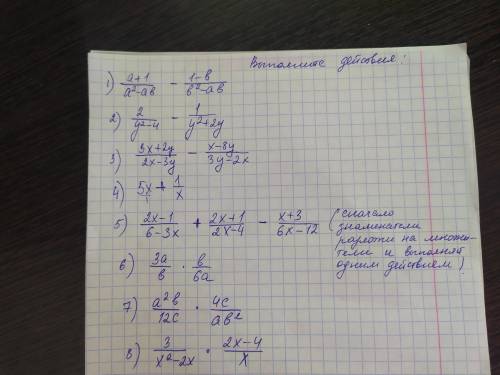 Выполните действия:
1) (a+1)/(a²-ab) - (1-b)/(b²-ab)
2) 2/(y²-4) - 1/(y²+2y)
3) (3x+2y)/(2x-3y) - (x-8y)/(3y-2x)
4) 5x + 1/x
5) (2x-1)/(6-3x) + (2x+1)/(2x-4) - (x+3)/(6x-12) (сначало
знаменатели
разложи на множи-
тели и выполняй
одним действием)
6) 3a/b · b/6a
7) a²b/12c · 4c/ab²
8) 3/(x²-2x) · (2x-4)/x